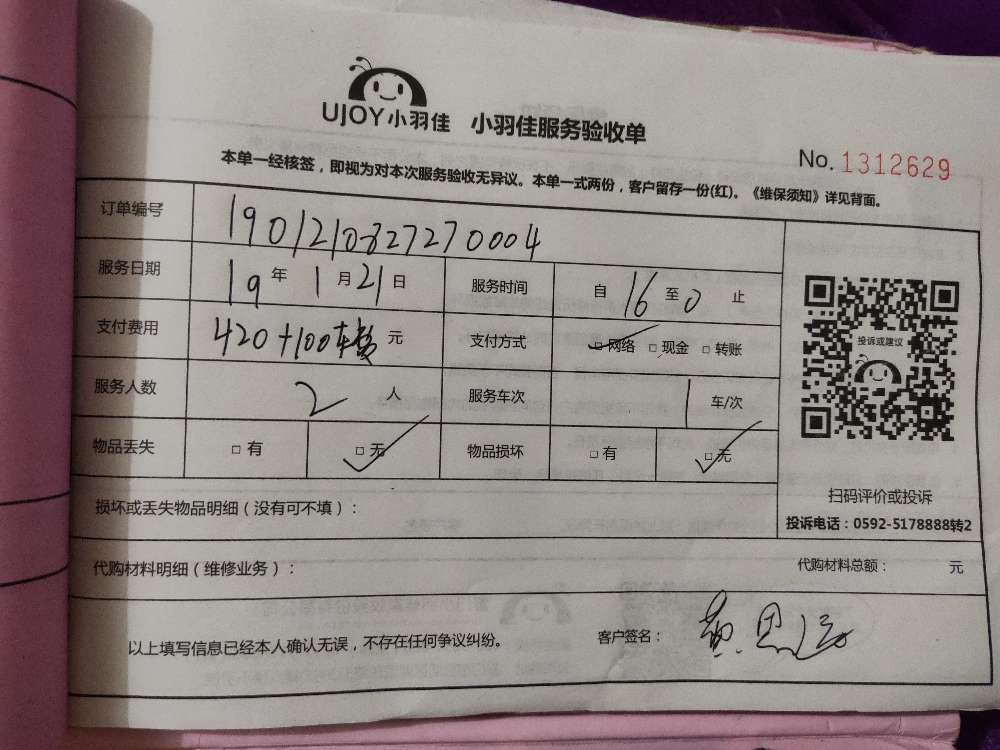 UJOY小羽佳 小羽佳服务验收单
No. 1312629
本单一经核签，即视为对本次服务验收无异议。本单一式两份，客户留存一份(红)。《维保须知》详见背面。
订单编号 1901210827270004
服务日期 19 年 1 月 21 日 服务时间 自 16 至 0 止
支付费用 420+100车费 元 支付方式 □网络 □现金 □转账
服务人数 2 人 服务车次 1 车/次
物品丢失 □有 □无 物品损坏 □有 □无
投诉或建议
扫码评价或投诉
投诉电话：0592-5178888转2
损坏或丢失物品明细（没有可不填）：
代购材料明细（维修业务）： 代购材料总额： 元
以上填写信息已经本人确认无误，不存在任何争议纠纷。 客户签名：